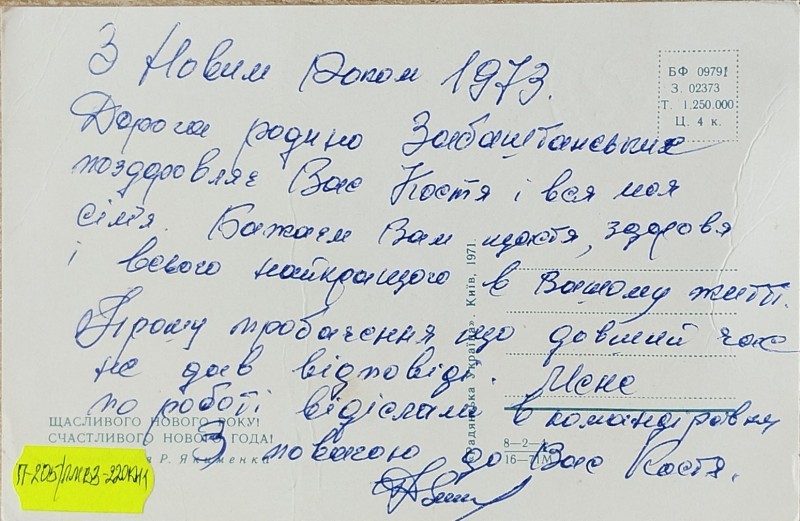 З Новим Роком 1973.
БФ 09791
З. 02373
Т. 1.250.000
Ц. 4 к.
Дорога родино Забаштанських
поздоровляє Вас Костя і вся моя
сім'я. Бажаєм Вам щастя, здоровя
і всього найкращого в Вашому житті.
Прошу пробачення що довший час
не дав відповіді. Мене
по роботі відіслали в командіровку
З повагою до Вас Костя.
ЩАСЛИВОГО НОВОГО РОКУ!
СЧАСТЛИВОГО НОВОГО ГОДА!
Р. Якименка
«Радянська Україна». Київ, 1971.
8—2—4
16—71М